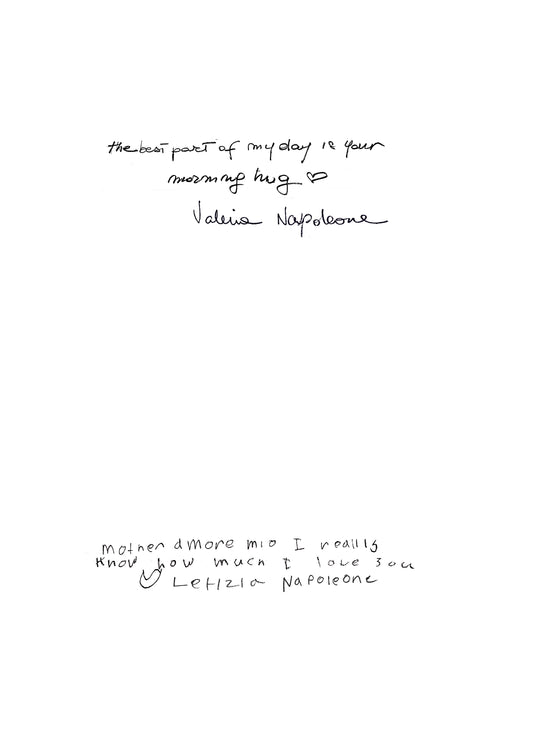 the best part of my day is your
morning hug ♡
Valeria Napoleone
mother amore mio I reallly
Know how much I love you
♡ Letizia Napoleone